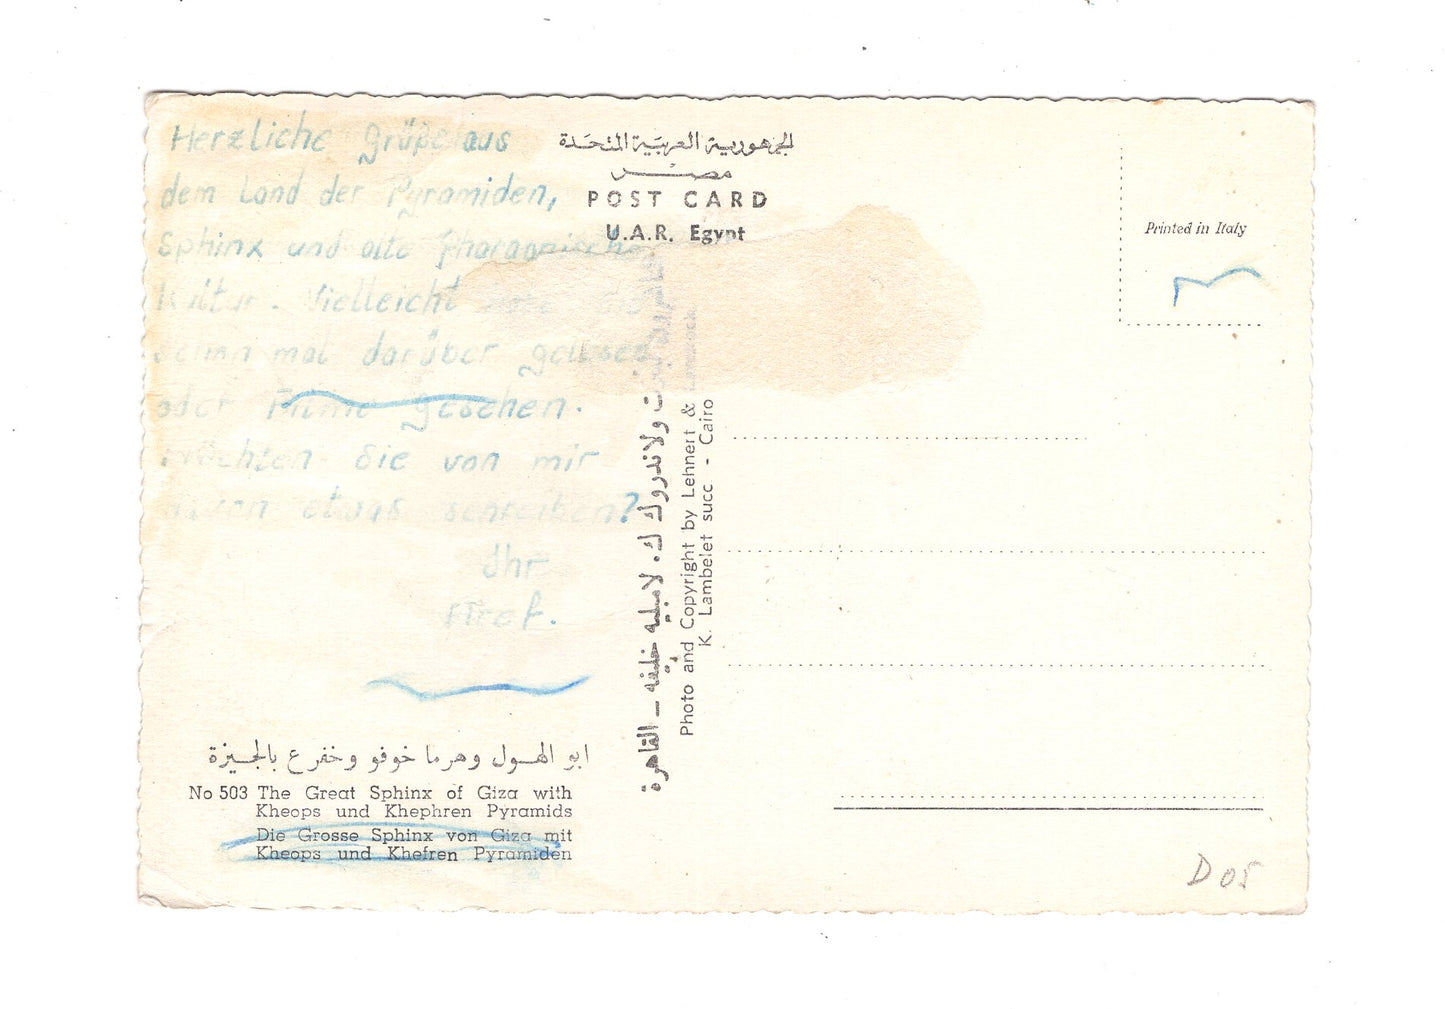 Herzliche Grüße aus
dem Land der Pyramiden,
Sphinx und alte Pharaonische
Kultur. Vielleicht
mal darüber gelesen
oder Filme gesehen.
Möchten Sie von mir
davon etwas schreiben?
Ihr
الجمهورية العربية المتحدة
مصر
POST CARD
U.A.R. Egypt
Printed in Italy
ولاندروك ك. لامبليه خليفه – القاهرة
Photo and Copyright by Lehnert & Landrock
K. Lambelet succ - Cairo
ابو الهول وهرما خوفو وخفرع بالجيزة
No 503 The Great Sphinx of Giza with
Kheops und Khephren Pyramids
Die Grosse Sphinx von Giza mit
Kheops und Khefren Pyramiden
D 05